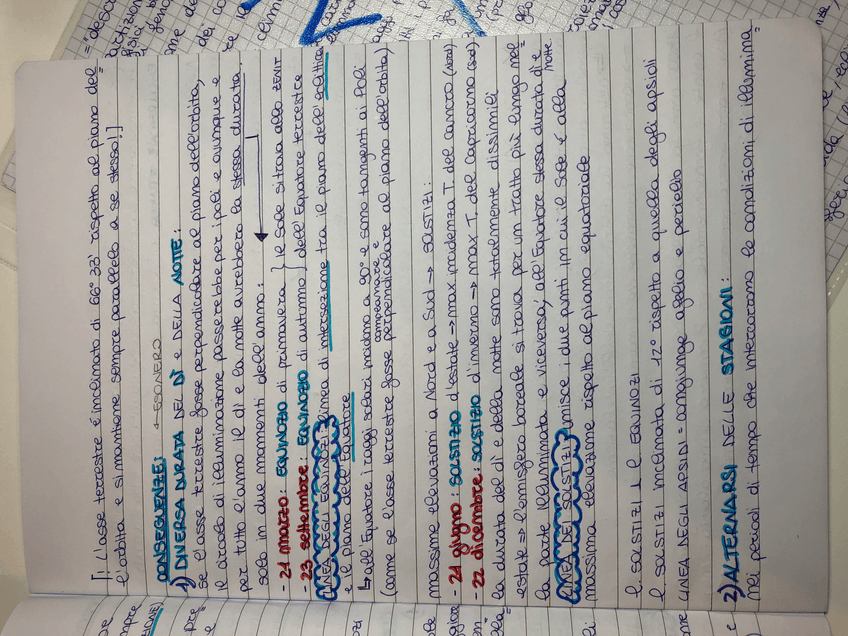 [! L'asse terrestre è inclinato di 66° 33' rispetto al piano del
l'orbita e si mantiene sempre parallelo a se stesso!]
CONSEGUENZE: ESONERO
1) DIVERSA DURATA DEL DÌ E DELLA NOTTE:
se l'asse terrestre fosse perpendicolare al piano dell'orbita,
il circolo di illuminazione passerebbe per i poli e ovunque e
per tutto l'anno il dì e la notte avrebbero la stessa durata.
solo in due momenti dell'anno:
- 21 marzo: EQUINOZIO di primavera } le Sole si trova allo ZENIT
- 23 settembre: EQUINOZIO di autunno } dell'Equatore terrestre
LINEA DEGLI EQUINOZI linea di intersezione tra il piano dell'eclittica
e il piano dell'Equatore
↳ all'Equatore i raggi solari incidono a 90° e sono tangenti ai Poli
(come se l'asse terrestre fosse perpendicolare al piano dell'orbita)
massime elevazioni a Nord e a Sud → SOLSTIZI:
- 21 giugno: SOLSTIZIO d'estate → max incidenza T. del cancro (Nord)
- 22 dicembre: SOLSTIZIO d'inverno → max T. del Capricorno (Sud)
la durata del dì e della notte sono totalmente dissimili
estate ⇒ l'emisfero boreale si trova per un tratto più lungo nel
la parte illuminata e viceversa; all'Equatore stessa durata dì e notte
LINEA DEI SOLSTIZI unisce i due punti in cui il Sole è alla
massima elevazione rispetto al piano equatoriale
l. SOLSTIZI ⊥ l. EQUINOZI
l. SOLSTIZI inclinata di 12° rispetto a quella degli apsidi
LINEA DEGLI APSIDI = congiunge afelio e perielio
2) ALTERNARSI DELLE STAGIONI:
Nei periodi di tempo che intercorrono le condizioni di illumina